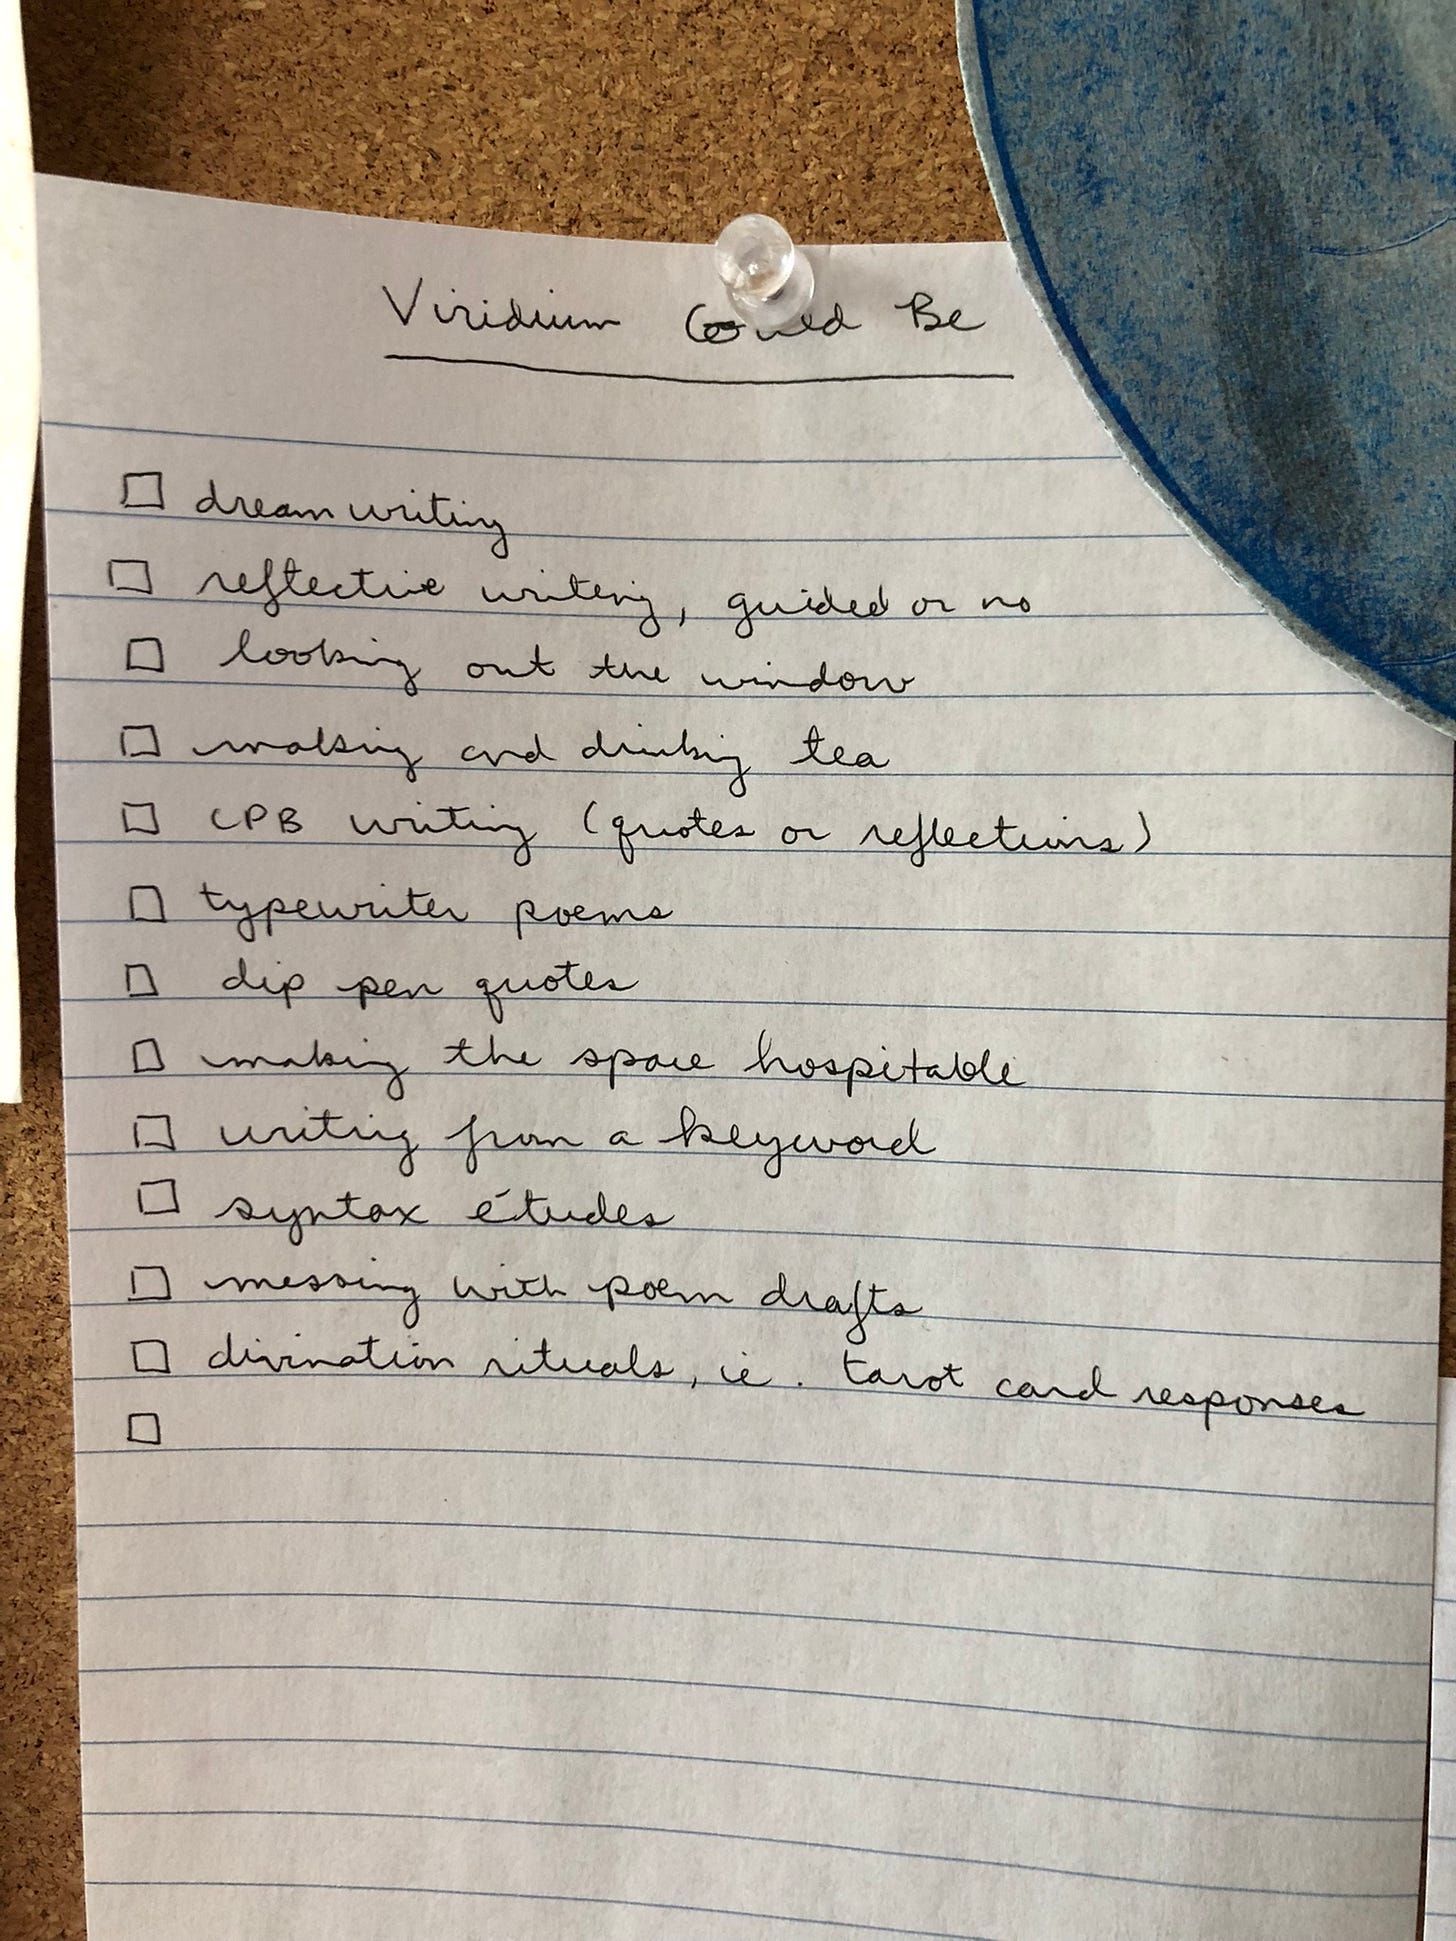 Viridium Could Be
☐ dream writing
☐ reflective writing, guided or no
☐ looking out the window
☐ making and drinking tea
☐ CPB writing (quotes or reflections)
☐ typewriter poems
☐ dip pen quotes
☐ making the space hospitable
☐ writing from a keyword
☐ syntax études
☐ messing with poem drafts
☐ divination rituals, ie. tarot card responses
☐